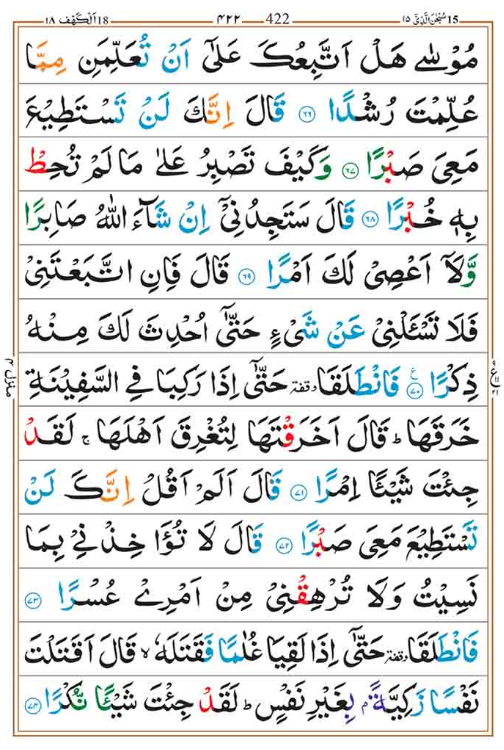 15 سُبْحٰنَ الَّذِیْٓ ١٥
422 ٤٢٢
18 اَلْکَهْف ١٨
مُوْسٰى هَلْ اَتَّبِعُكَ عَلٰٓى اَنْ تُعَلِّمَنِ مِمَّا
عُلِّمْتَ رُشْدًا ٦٦ قَالَ اِنَّكَ لَنْ تَسْتَطِیْعَ
مَعِیَ صَبْرًا ٦٧ وَكَیْفَ تَصْبِرُ عَلٰى مَا لَمْ تُحِطْ
بِهٖ خُبْرًا ٦٨ قَالَ سَتَجِدُنِیْۤ اِنْ شَآءَ اللّٰهُ صَابِرًا
وَّلَاۤ اَعْصِیْ لَكَ اَمْرًا ٦٩ قَالَ فَاِنِ اتَّبَعْتَنِیْ
فَلَا تَسْـَٔلْنِیْ عَنْ شَیْءٍ حَتّٰۤى اُحْدِثَ لَكَ مِنْهُ
ذِكْرًا ع ٧٠ فَانْطَلَقَا وقفة حَتّٰۤى اِذَا رَكِبَا فِی السَّفِیْنَةِ
خَرَقَهَا ؕ قَالَ اَخَرَقْتَهَا لِتُغْرِقَ اَهْلَهَا ۚ لَقَدْ
جِئْتَ شَیْـًٔا اِمْرًا ٧١ قَالَ اَلَمْ اَقُلْ اِنَّكَ لَنْ
تَسْتَطِیْعَ مَعِیَ صَبْرًا ٧٢ قَالَ لَا تُؤَاخِذْنِیْ بِمَا
نَسِیْتُ وَلَا تُرْهِقْنِیْ مِنْ اَمْرِیْ عُسْرًا ٧٣
فَانْطَلَقَا وقفة حَتّٰۤى اِذَا لَقِیَا غُلٰمًا فَقَتَلَهٗ ۙ قَالَ اَقَتَلْتَ
نَفْسًا زَكِیَّةًۢ بِغَیْرِ نَفْسٍ ؕ لَقَدْ جِئْتَ شَیْـًٔا نُّكْرًا ٧٤
منزل ٤